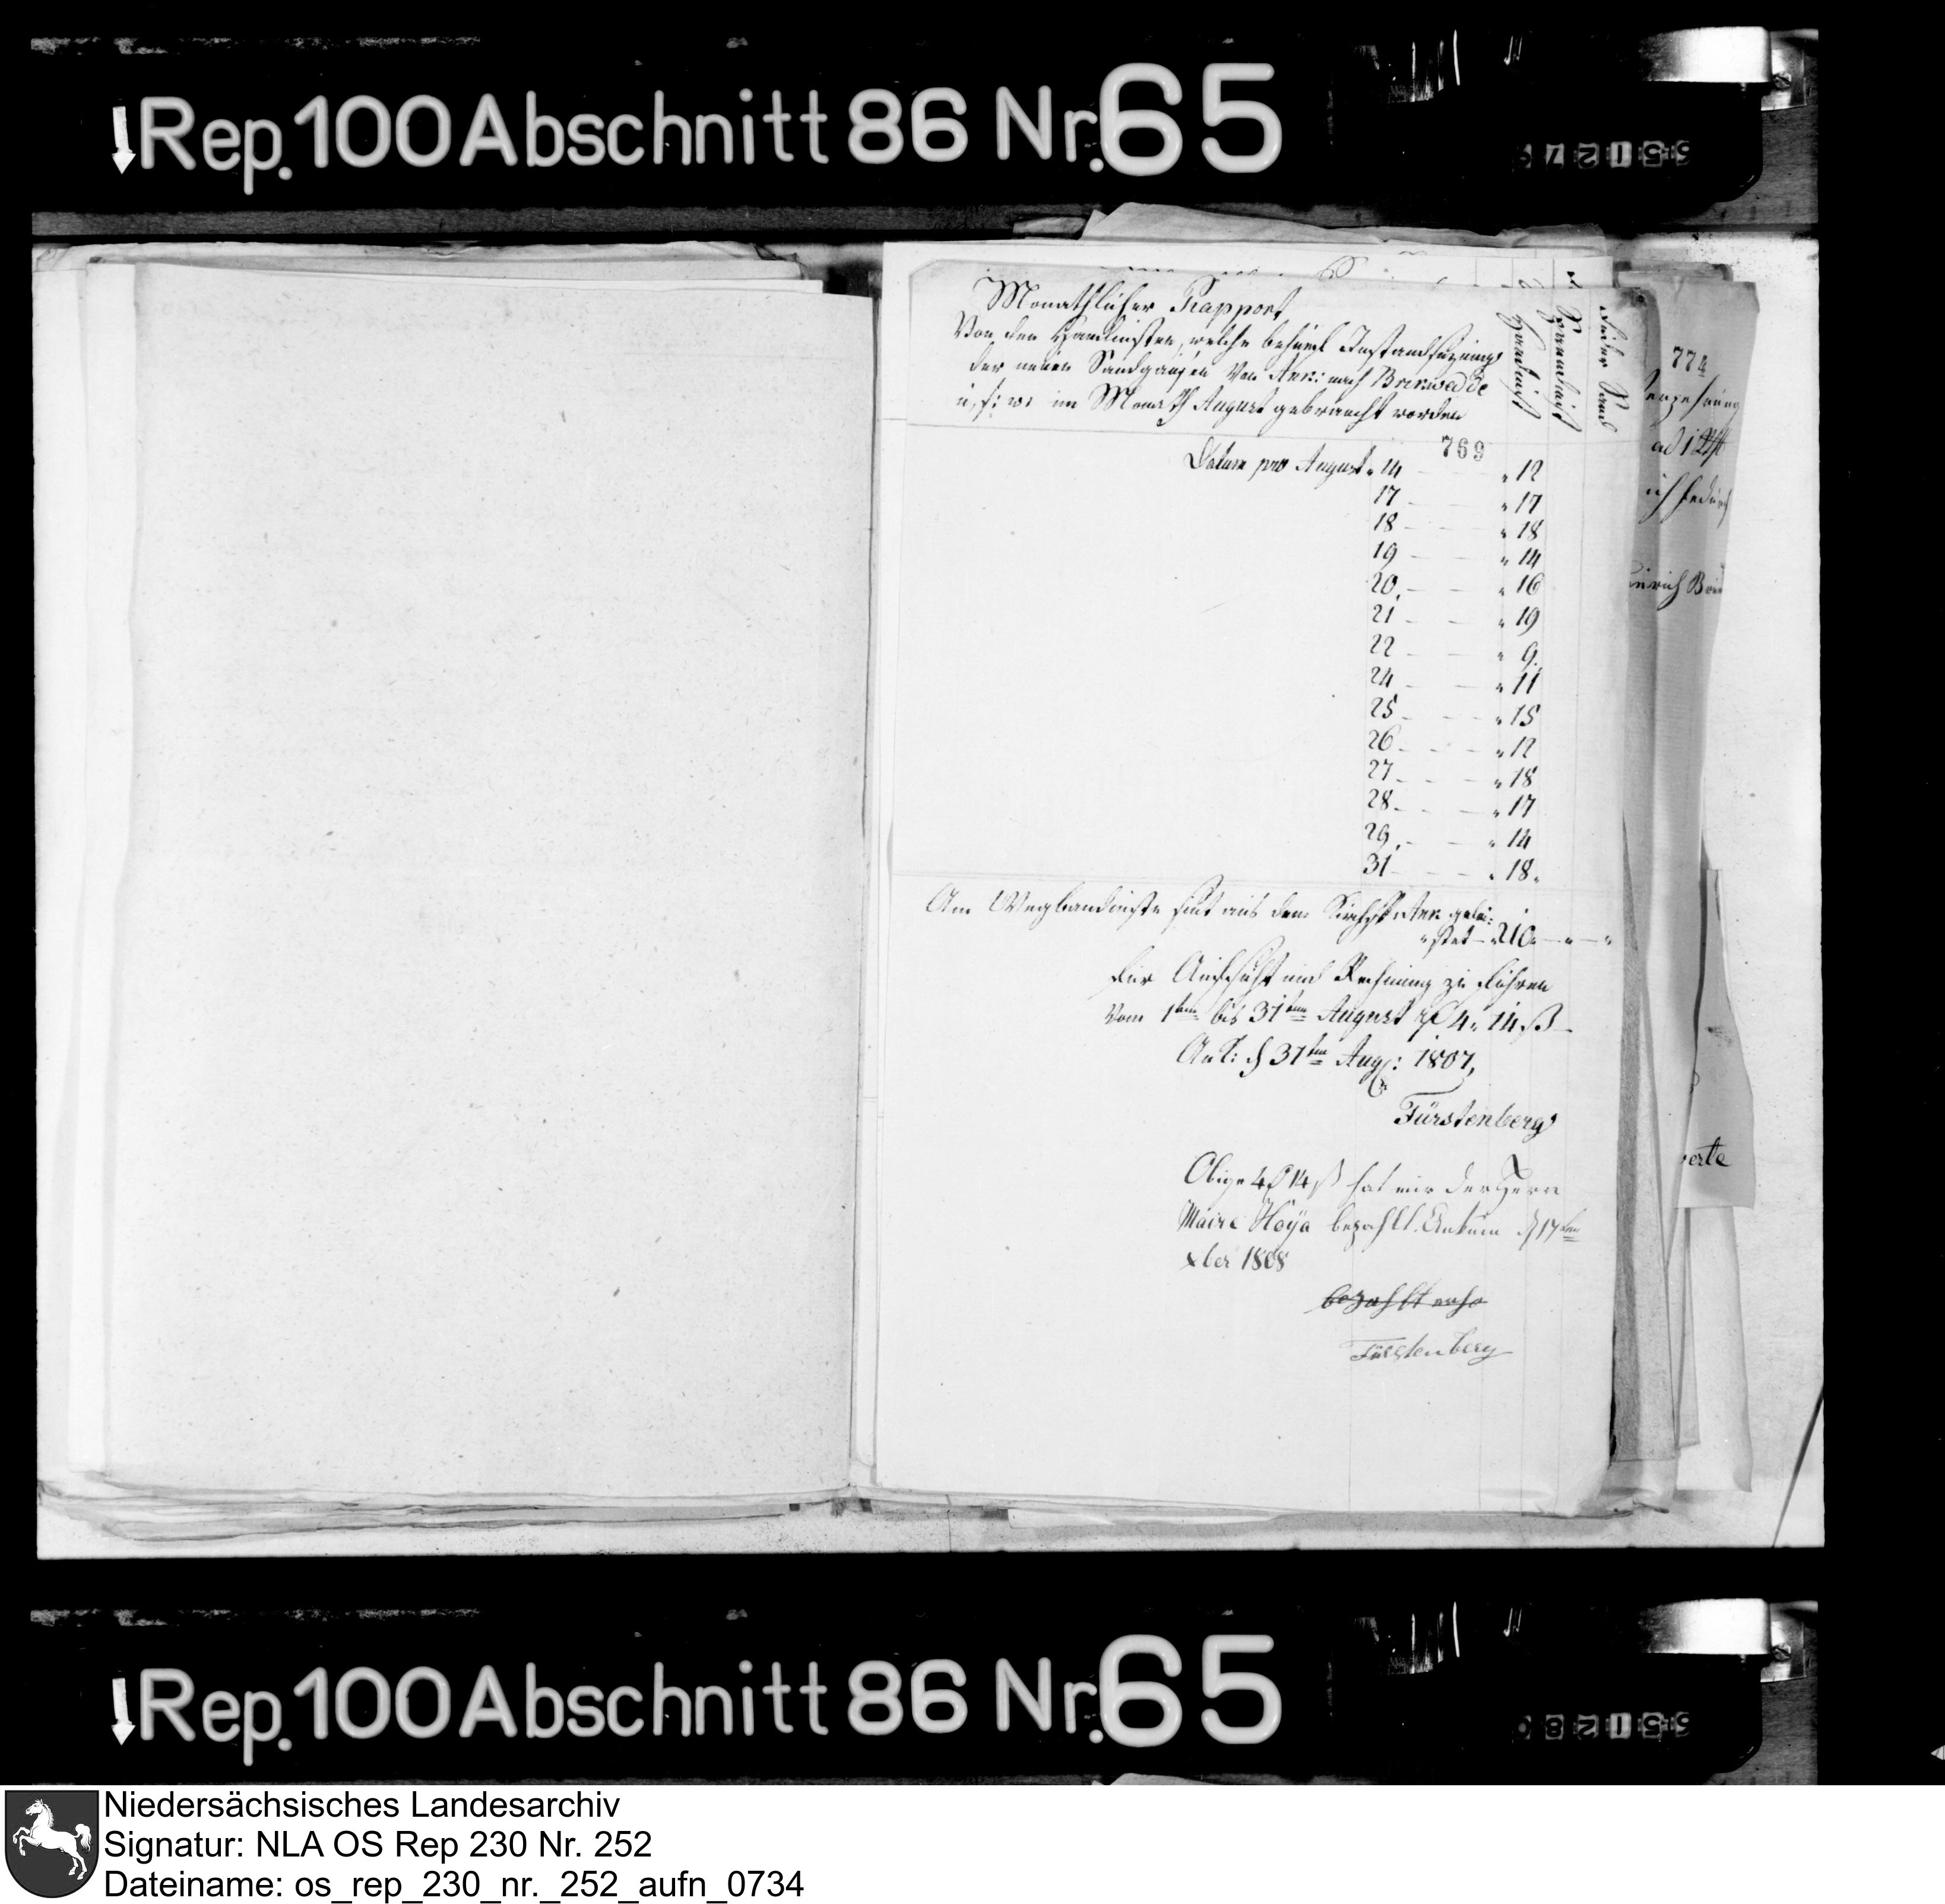 Rep. 100 Abschnitt 86 Nr. 65
Monathlicher Rapport
Von den Handdinsten, welche behuef Instandsezung
der neuen Sandgruben von Ank: nach Brickwedde
u, s: w: im Monath August gebraucht worden
Handdinst
Spanndinst
Fuder Sand
769
Datum pro August 14 12
17 17
18 18
19 14
20 16
21 19
22 9
24 11
25 15
26 12
27 18
28 17
29 14
31 18
An Weghanddinste sint aus dem Kirchspl Ank gelei-
stet 210
Für Aufsicht und Rechnung zu führen
Vom 1ten bis 31ten August 4 14 ß
Ank: d 31ten Aug: 1807,
Fürstenberg
Obige 4 14 ß hat mir der Herr
Maire Hoÿa bezahlt. Ankum d 17ten
xber 1808
bezahlt
Fürstenberg
774
Rep. 100 Abschnitt 86 Nr. 65
Niedersächsisches Landesarchiv
Signatur: NLA OS Rep 230 Nr. 252
Dateiname: os_rep_230_nr._252_aufn_0734